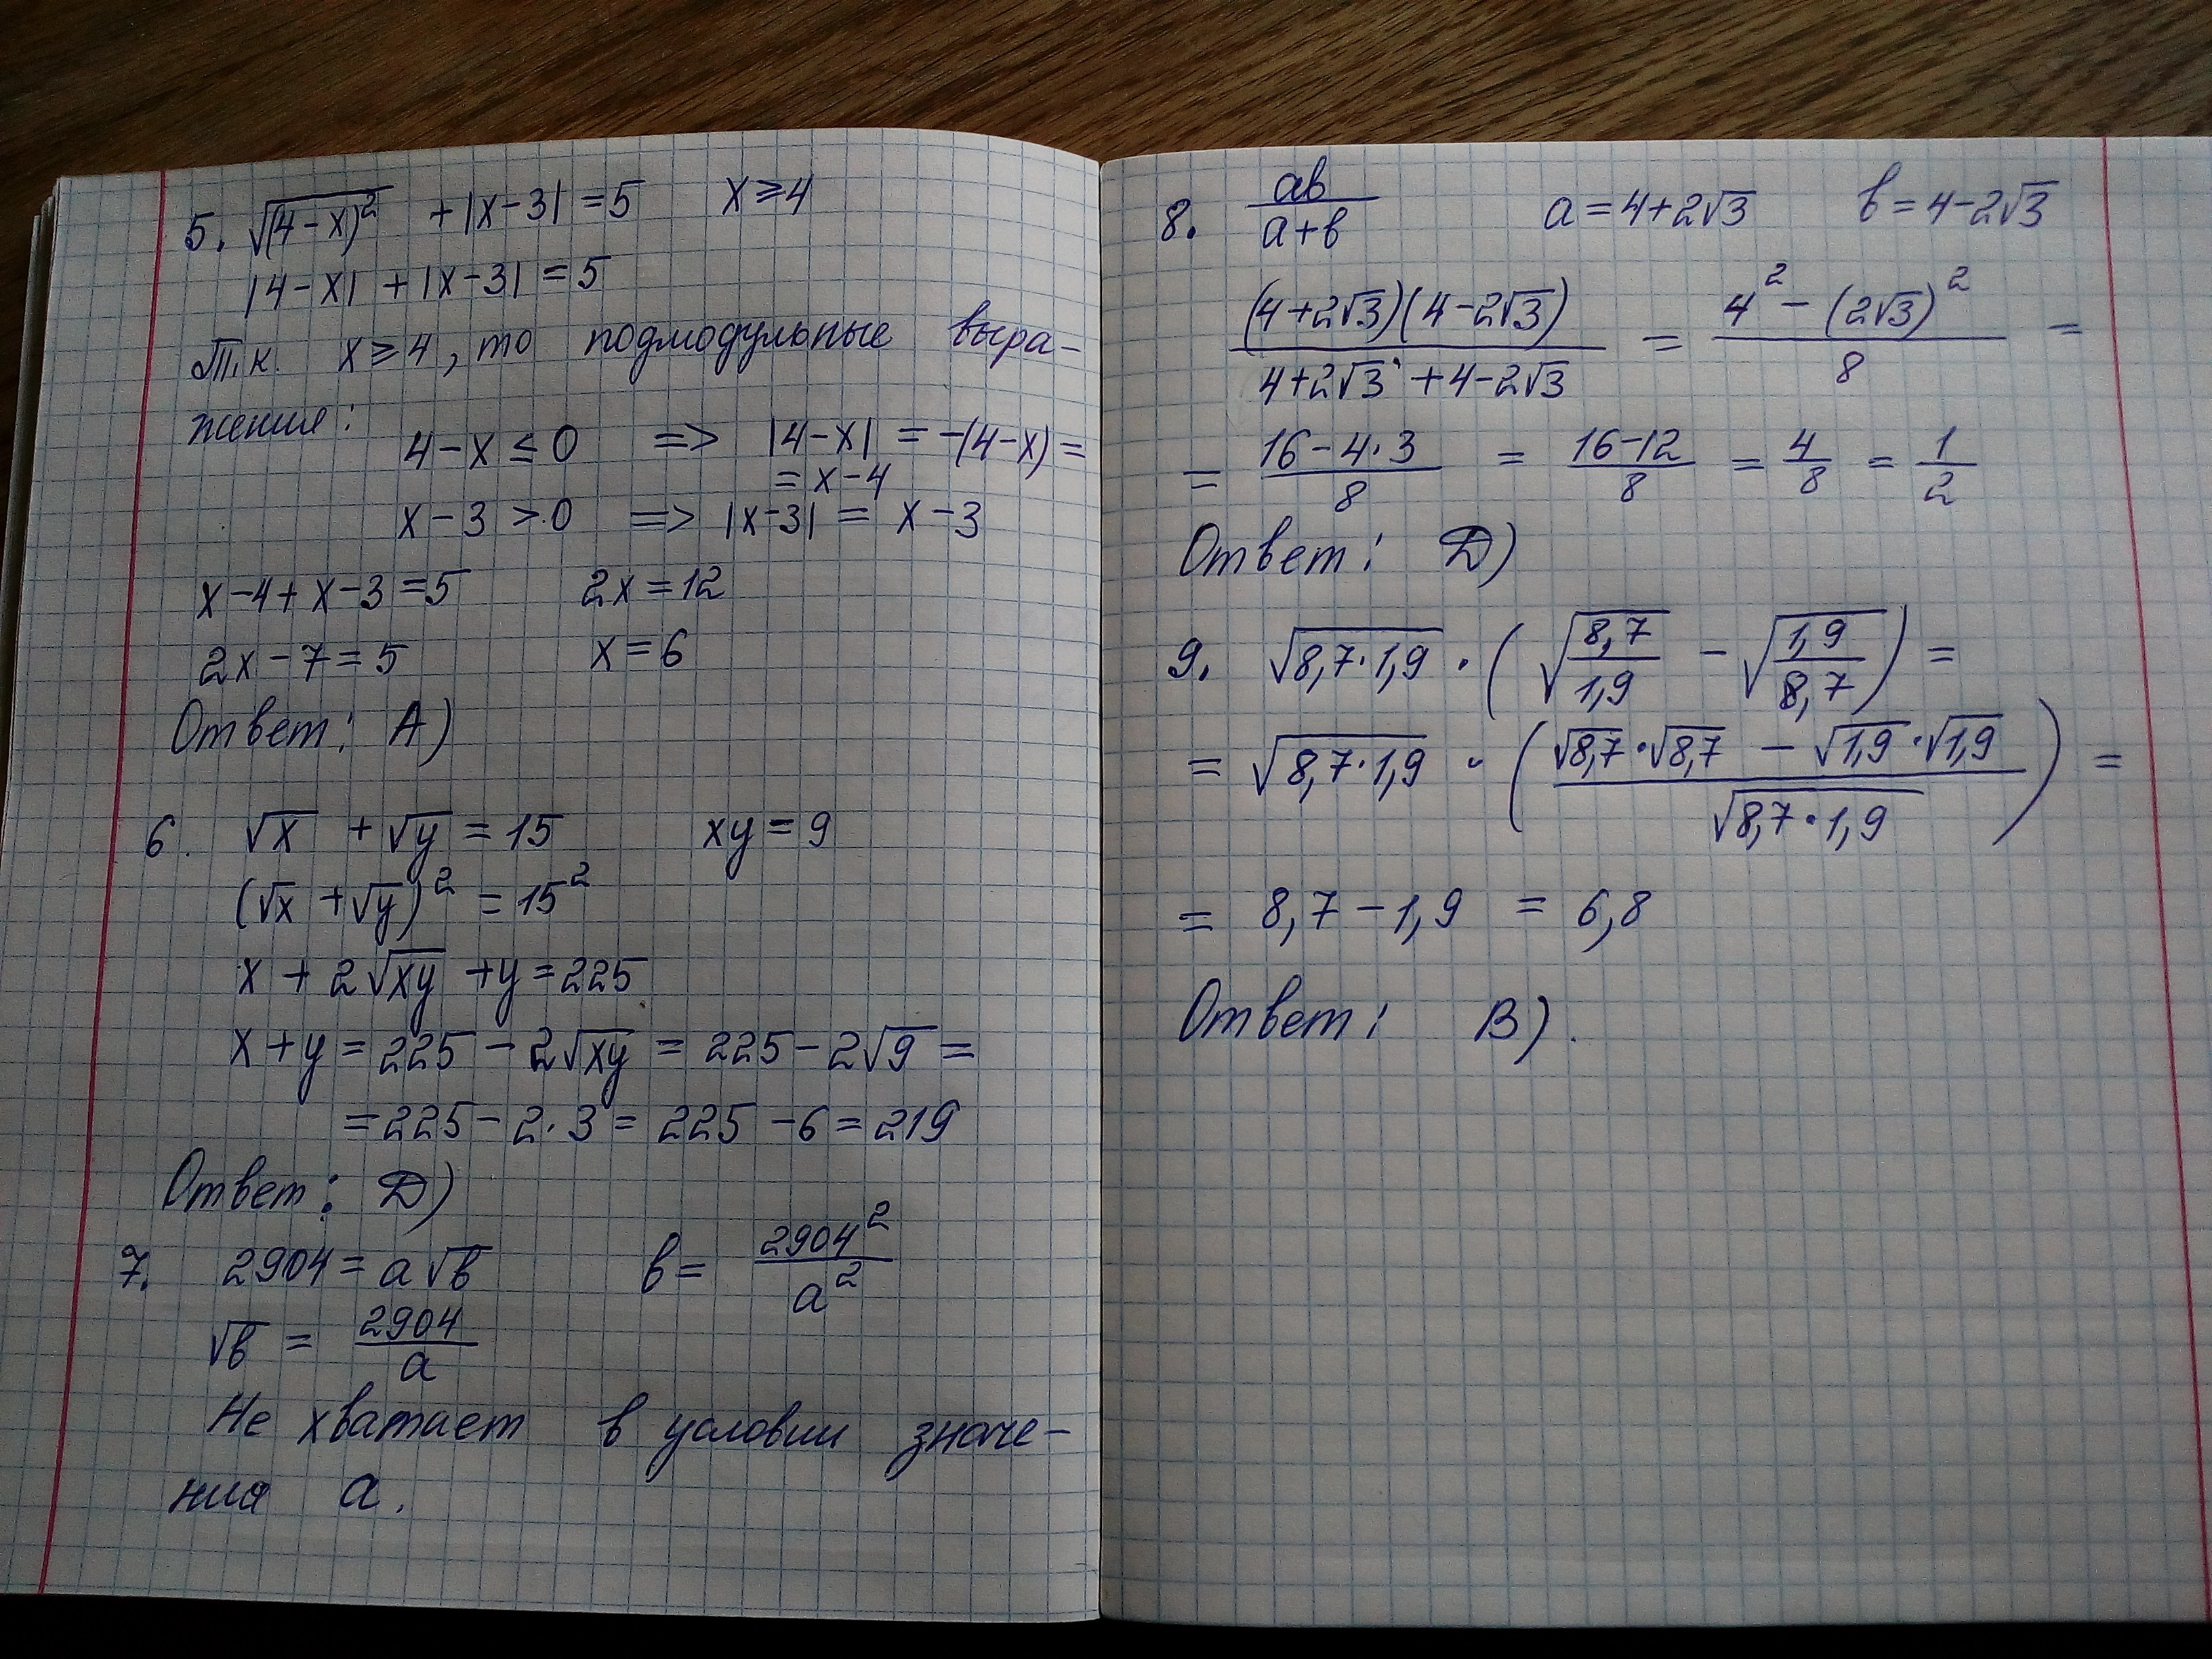 5. √(4-x)² + |x-3| = 5 x ≥ 4
|4-x| + |x-3| = 5
Т.к. x ≥ 4, то подмодульные выра-
жения:
4-x ≤ 0 => |4-x| = -(4-x) =
= x-4
x-3 > 0 => |x-3| = x-3
x-4+x-3=5 2x=12
2x-7=5 x=6
Ответ: А)
6. √x + √y = 15 xy = 9
(√x + √y)² = 15²
x + 2√xy + y = 225
x+y = 225 - 2√xy = 225 - 2√9 =
= 225 - 2·3 = 225 - 6 = 219
Ответ: D)
7. 2904 = a√b b = 2904²/a²
√b = 2904/a
Не хватает в условии значе-
ния а.
8. ab/(a+b) a = 4+2√3 b = 4-2√3
(4+2√3)(4-2√3)/(4+2√3+4-2√3) = (4² - (2√3)²)/8 =
= (16-4·3)/8 = (16-12)/8 = 4/8 = 1/2
Ответ: D)
9. √(8,7·1,9) · (√(8,7/1,9) - √(1,9/8,7)) =
= √(8,7·1,9) · ((√8,7·√8,7 - √1,9·√1,9)/√(8,7·1,9)) =
= 8,7-1,9 = 6,8
Ответ: В).